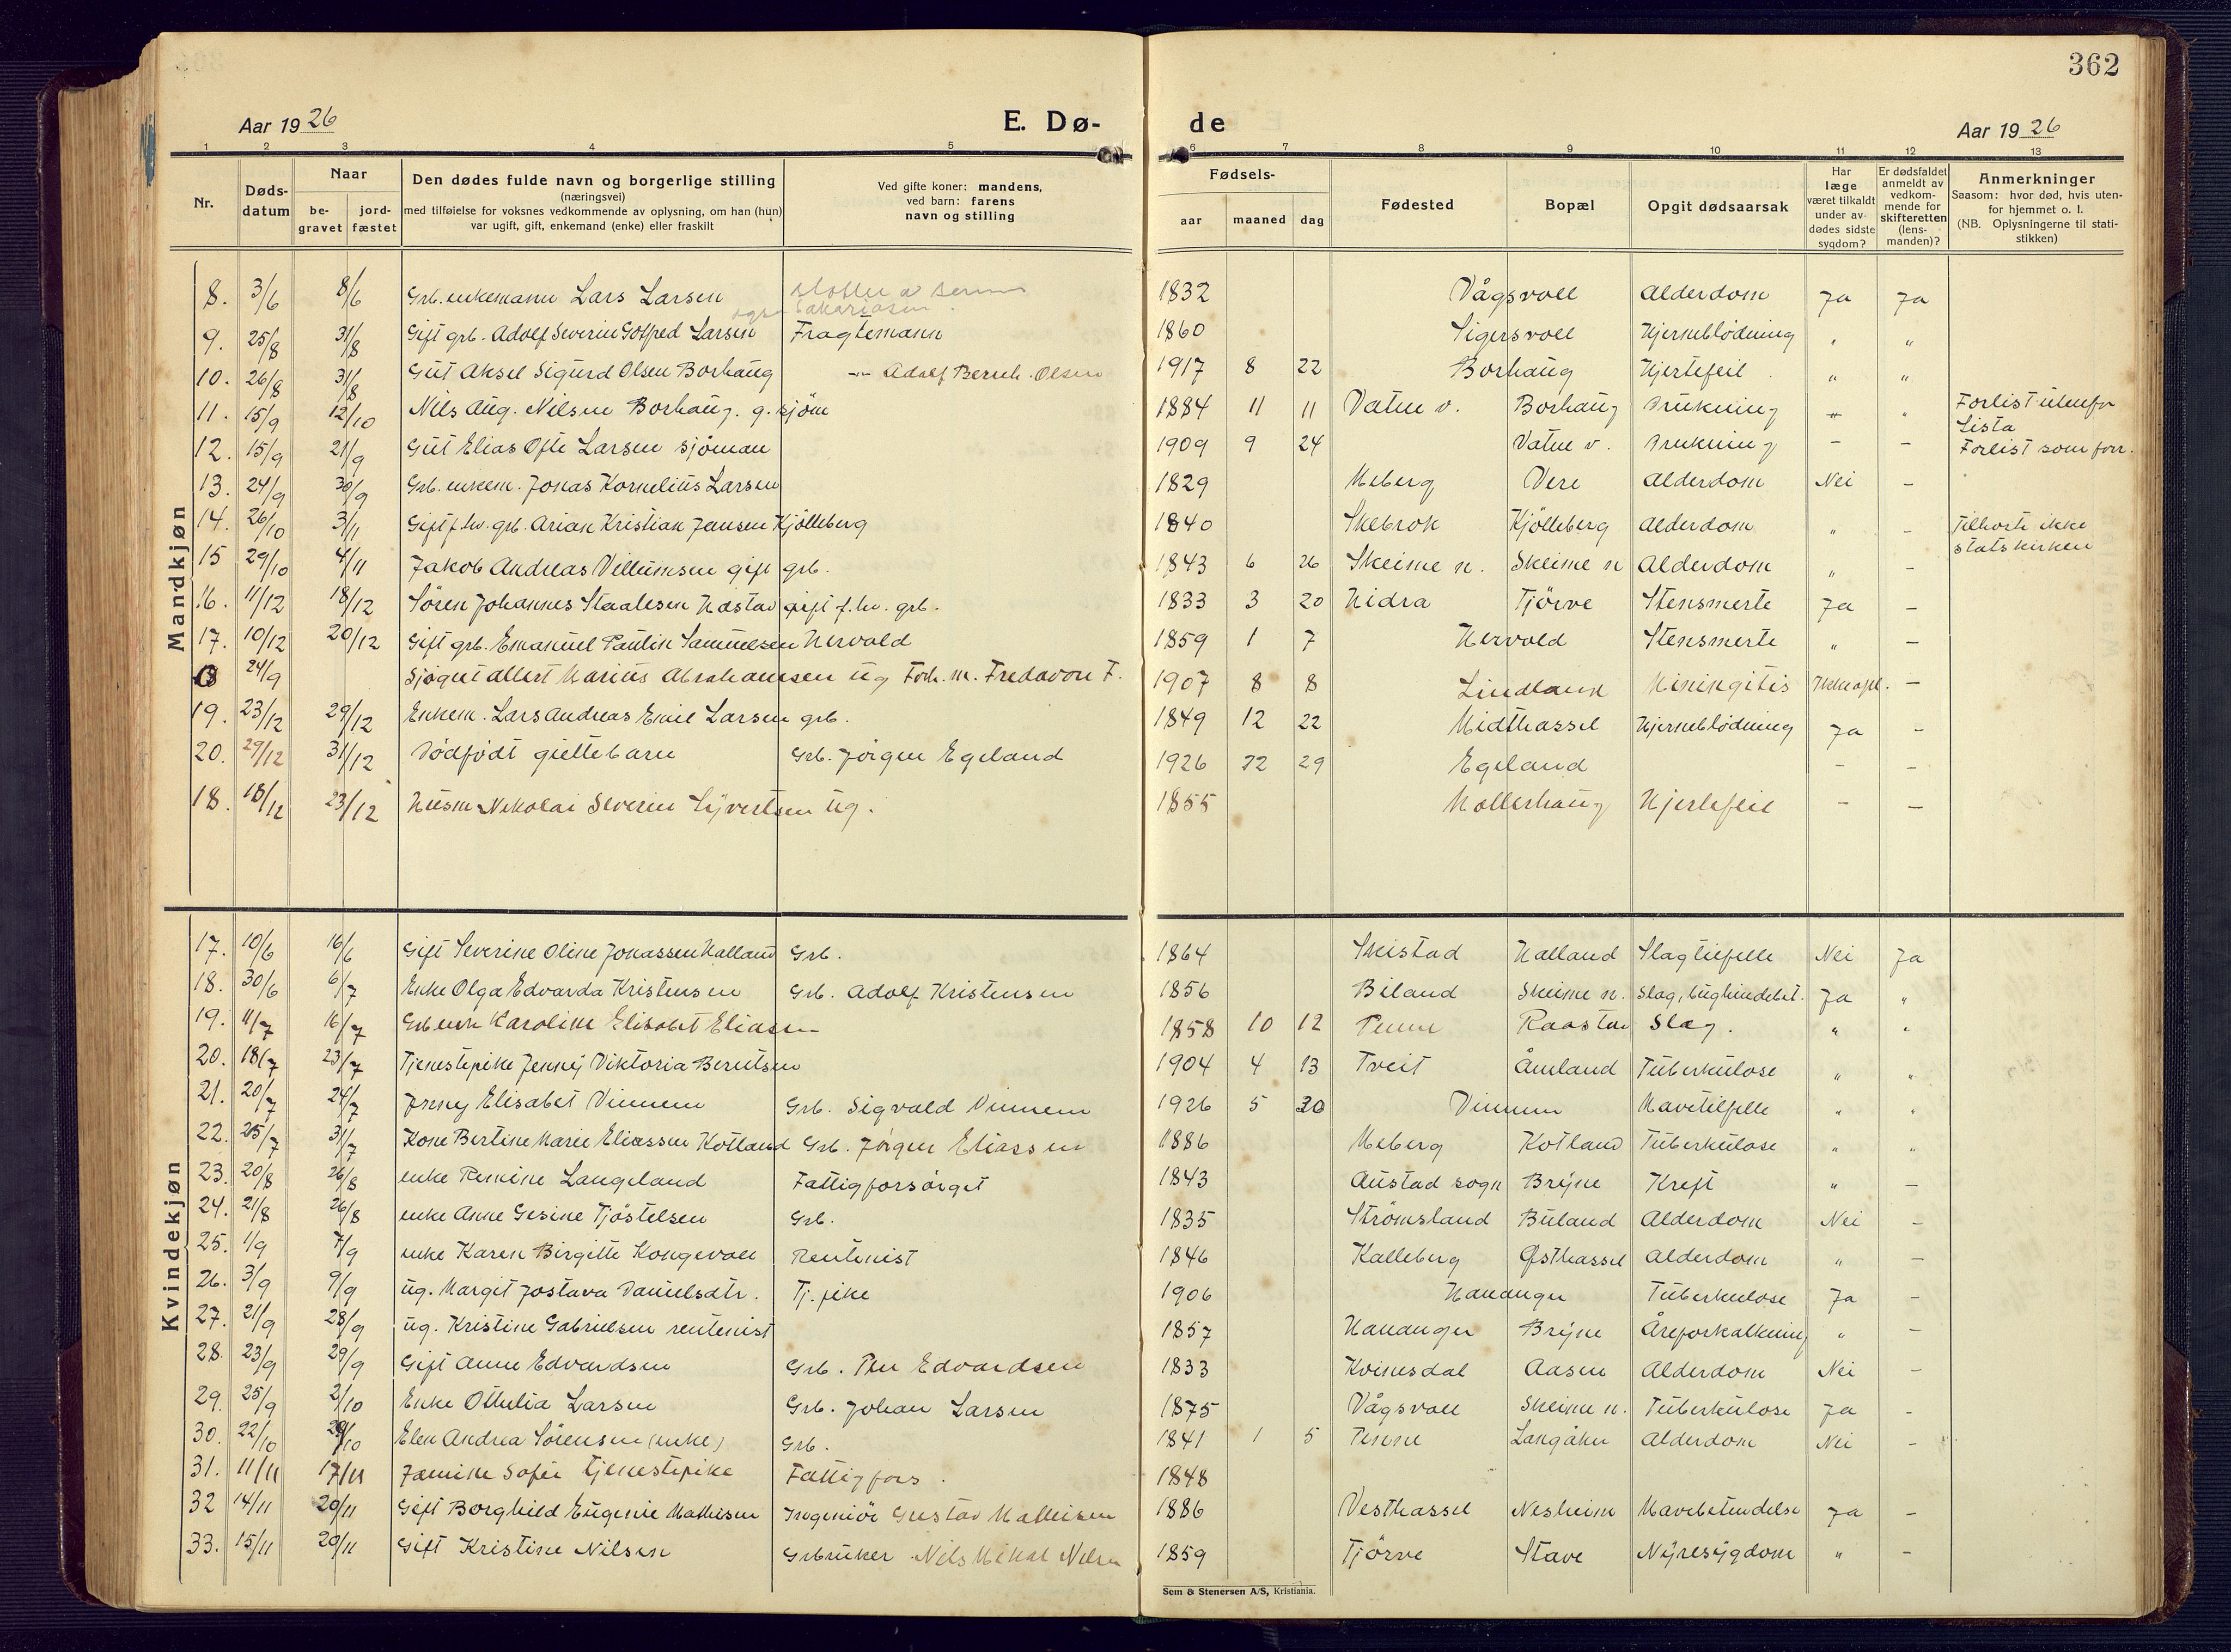 362
Aar 1926 E. Dø- de Aar 1926
1 2 3 4 5 6 7 8 9 10 11 12 13
Nr. Døds-datum Naar be-gravet jord-fæstet Den dødes fulde navn og borgerlige stilling (næringsvei) med tilføielse for voksnes vedkommende av oplysning, om han (hun) var ugift, gift, enkemand (enke) eller fraskilt Ved gifte koner: mandens, ved barn: farens navn og stilling Fødsels- aar maaned dag Fødested Bopæl Opgit dødsaarsak Har læge været tilkaldt under avdødes sidste sygdom? Er dødsfaldet anmeldt av vedkommende for skifteretten (lensmanden)? Anmerkninger Saasom: hvor død, hvis utenfor hjemmet o. l. (NB. Oplysningerne til statistikken)
Mandkjøn
8. 3/6 8/6 Grb. enkemann Lars Larsen 1832 Vågsvoll Alderdom Ja Ja
9. 25/8 31/8 Gift grb. Adolf Severin Gotfred Larsen Fragtemann 1860 Sigersvoll Hjerneblödning " "
10. 26/8 31/8 Gut Aksel Sigurd Olsen Borhaug -"- Adolf Bernh. Olsen 1917 8 22 Borhaug Hjertefeil " "
11. 15/9 12/10 Nils Aug. Nilsen Borhaug. g. sjöm 1884 11 11 Vatne v. Borhaug Drukning " Forlist utenfor Lista
12. 15/9 21/9 Gut Elias Ofte Larsen sjöman 1909 9 24 Vatne v. Drukning – – Forlist som forr.
13. 24/9 30/9 Grb. enkem. Jonas Kornelius Larsen 1829 Meberg Vere Alderdom Nei –
14. 26/10 3/11 Gift f.hv. grb. Arian Kristian Jansen Kjölleberg 1840 Skebrok Kjölleberg Alderdom " – Tilhorte ikke statskirken
15 29/10 4/11 Jakob Andreas Villumsen gift grb. 1843 6 26 Skeime n. Skeime n Alderdom " –
16. 11/12 18/12 Sören Johannes Staalesen Hastad gift f.hv. grb. 1833 3 20 Hidra Tjörve Stensmerte Ja –
17. 10/12 20/12 Gift grb. Emanuel Paulin Samuelsen Hervold 1859 1 7 Hervold Stensmerte " –
24/9 Sjögut Albert Marius Abrahamsen ug Forh. m. Fredavon F. 1907 8 8 Lindland Miningitis Ikke opl. –
19. 23/12 29/12 Enkem. Lars Andreas Emil Larsen grb. 1849 12 22 Midthassel Hjerneblödning Ja –
20. 29/12 31/12 Dödfödt guttebarn Grb. Jörgen Egeland 1926 12 29 Egeland – –
18. 18/12 23/12 Husm Nikolai Severin Syvertsen ug. 1855 Mollerhaug Hjertefeil – –
Kvindekjøn
17. 10/6 16/6 Gift Severine Oline Jonassen Halland Grb. 1864 Skistad Halland Slagtilfelle Nei Ja
18. 30/6 6/7 Enke Olga Edvarda Kristensen Grb. Adolf Kristensen 1856 Biland Skeime n. Slag, bughindebet. Ja "
19. 11/7 16/7 Grb enke Karoline Elisabet Eliassen 1858 10 12 Penne Raastad Slag. " "
20. 18/7 23/7 Tjenestepike Jenny Viktoria Berntsen 1904 4 13 Tveit Åmland Tuberkulose " "
21. 20/7 24/7 Jenny Elisabet Vinnem Grb. Sigvald Vinnem 1926 5 30 Vinnem Mavetilfelle " "
22. 25/7 31/7 Kone Bertine Marie Eliassen Kotland Grb. Jörgen Eliassen 1886 Meberg Kotland Tuberkulose " "
23. 20/8 26/8 enke Remine Langeland Fattigforsörget 1843 Austad sogn Bryne Kreft " –
24. 21/8 26/8 enke Anne Gesine Tjöstelsen Grb. 1835 Strömsland Buland Alderdom Nei –
25. 1/9 7/9 enke Karen Birgitte Kongevoll Rentenist 1846 Kalleberg Østhassel Alderdom " –
26. 3/9 9/9 ug. Margit Jostava Danielsdtr. Tj. pike 1906 Hananger Tuberkulose Ja –
27. 21/9 28/9 ug. Kristine Gabrielsen rentenist 1857 Hananger Bryne Åreforkalkning " –
28. 23/9 29/9 Gift Anne Edvardsen Grb. Per Edvardsen 1833 Kvinesdal Aasen Alderdom Nei –
29. 25/9 2/10 Enke Ottulia Larsen Grb. Johan Larsen 1875 Vågsvoll Skeime n. Tuberkulose Ja –
30. 22/10 29/10 Elen Andrea Sörensen (enke) Grb. 1841 1 5 Penne Langåker Alderdom Nei –
31. 11/11 17/11 Jamine Sofie tjenestepike Fattigfors. 1848
32 14/11 20/11 Gift Borghild Eugenie Mathisen Ingeniör Gustav Mathisen 1886 Vesthassel Nesheim Mavebetendelse Ja –
33. 15/11 20/11 Gift Kristine Nilsen Grbruker Nils Mikal Nilsen 1859 Tjörve Stave Nyresygdom " –
Sem & Stenersen A/S, Kristiania.